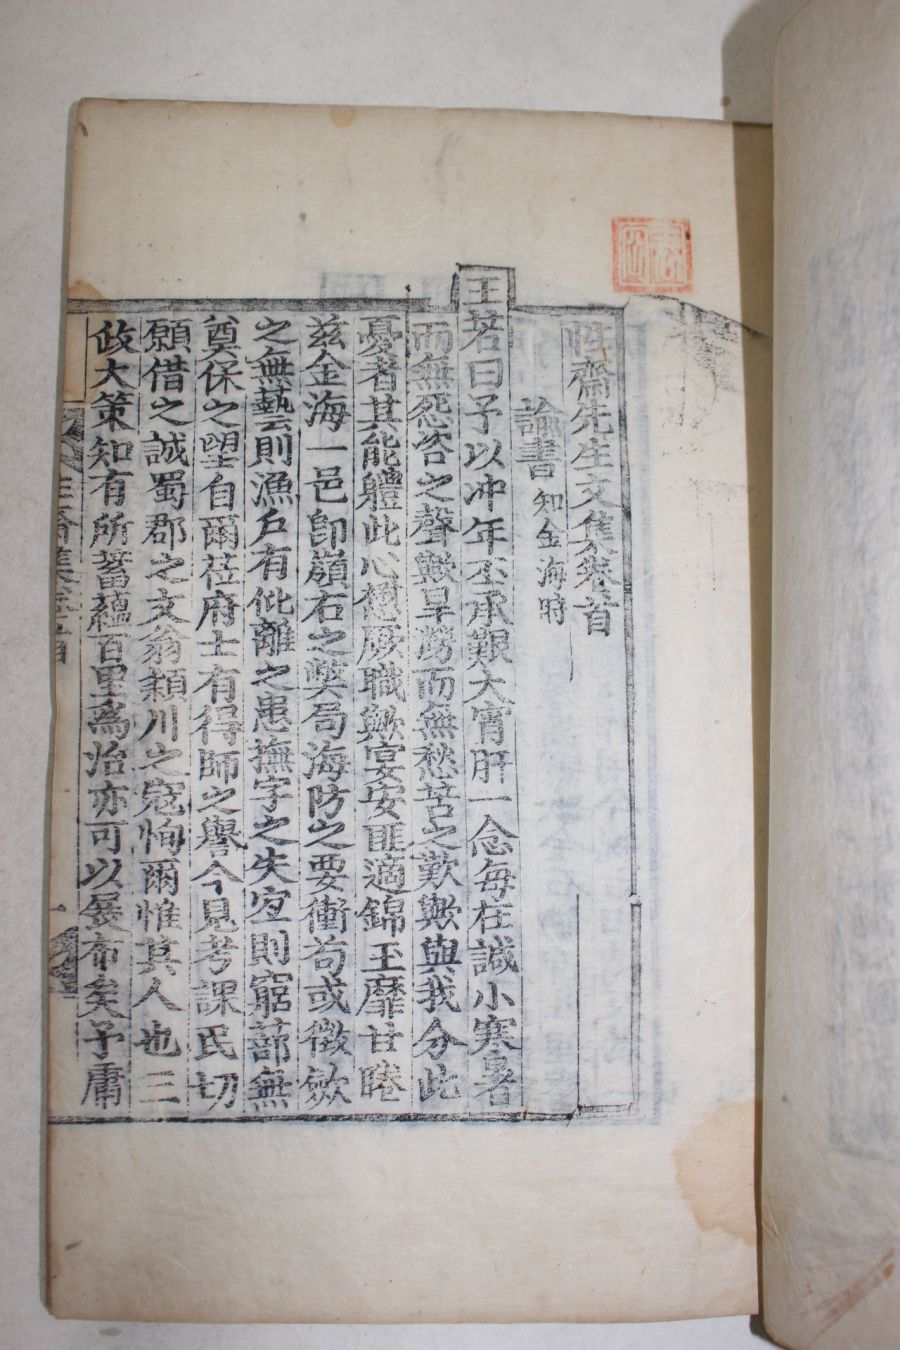 性齋先生文集卷首
諭書 知金海時
王若曰予以冲年丕承艱大宵旰一念每在諴小寒暑
而無怨咨之聲歟旱澇而無愁苦之歎歟與我分此
憂者其能軆此心懋厥職歟宴安匪適錦玉靡甘睠
玆金海一邑卽嶺右之獘局海防之要衝苟或徵斂
之無藝則漁戶有仳離之患撫字之失宜則窮蔀無
奠保之望自爾莅府士有得師之譽今見考課民切
願借之誠蜀郡之文翁潁川之寇恂爾惟其人也三
政大策知有所蓄蘊百里爲治亦可以展布矣予庸
性齋集卷首